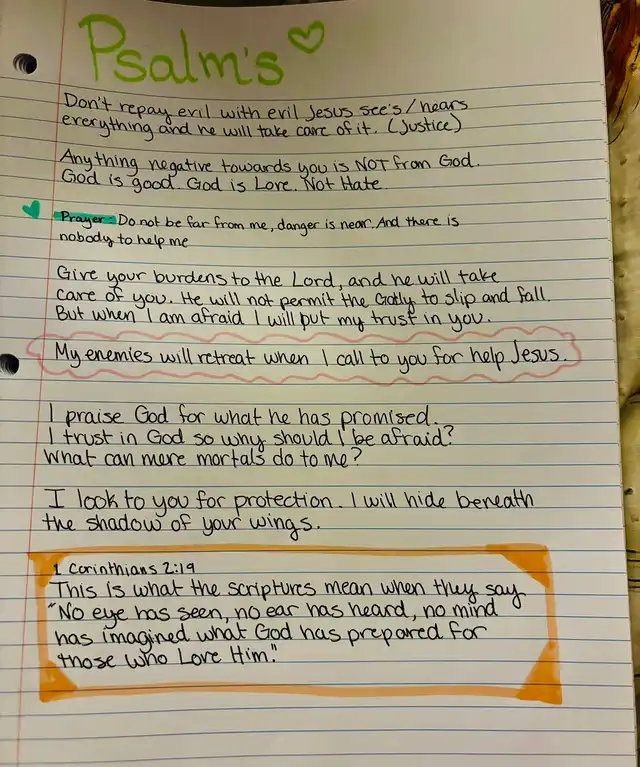 Psalm's
Don't repay evil with evil Jesus see's/hears
everything and he will take care of it. (Justice)
Anything negative towards you is NOT from God.
God is good. God is Love. Not Hate
Prayer: Do not be far from me, danger is near. And there is
nobody to help me
Give your burdens to the Lord, and he will take
care of you. He will not permit the Godly to slip and fall.
But when I am afraid I will put my trust in you.
My enemies will retreat when I call to you for help Jesus.
I praise God for what he has promised.
I trust in God so why should I be afraid?
What can mere mortals do to me?
I look to you for protection. I will hide beneath
the shadow of your wings.
1 Corinthians 2:19
This is what the scriptures mean when they say
"No eye has seen, no ear has heard, no mind
has imagined what God has prepared for
those who Love Him."